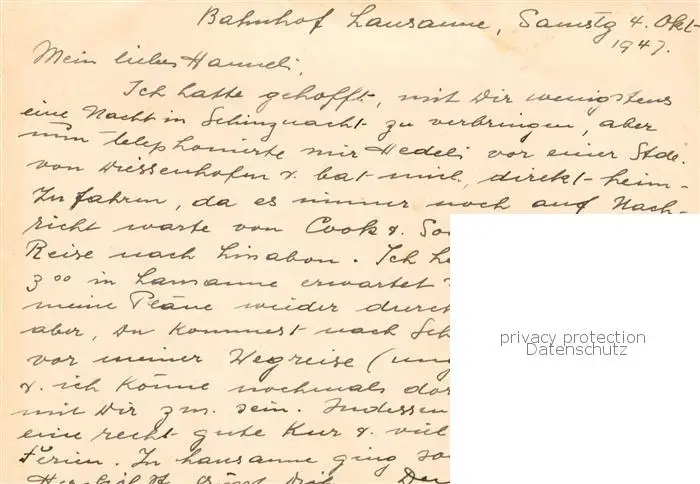 Bahnhof Lausanne, Samstg 4. Okt.
1947.
Mein liebes Hanneli,
Ich hatte gehofft, mit Dir wenigstens
eine Nacht in Schinznacht zu verbringen, aber
nun telephonierte mir Hedeli vor einer Stde.
von Diessenhofen & bat mich, direkt heim-
zufahren, da es immer noch auf Nach-
richt warte von Cook & So
Reise nach Lissabon. Ich h
3°° in Lausanne erwartet
meine Pläne wieder durch
aber, Du kommest nach Sch
vor meiner Wegreise (un
& ich könne nochmals dor
mit Dir zus. sein. Indessen
eine recht gute Kur & viel
Ferien. In Lausanne ging so
Herzlich grüsst Dich
privacy protection
Datenschutz